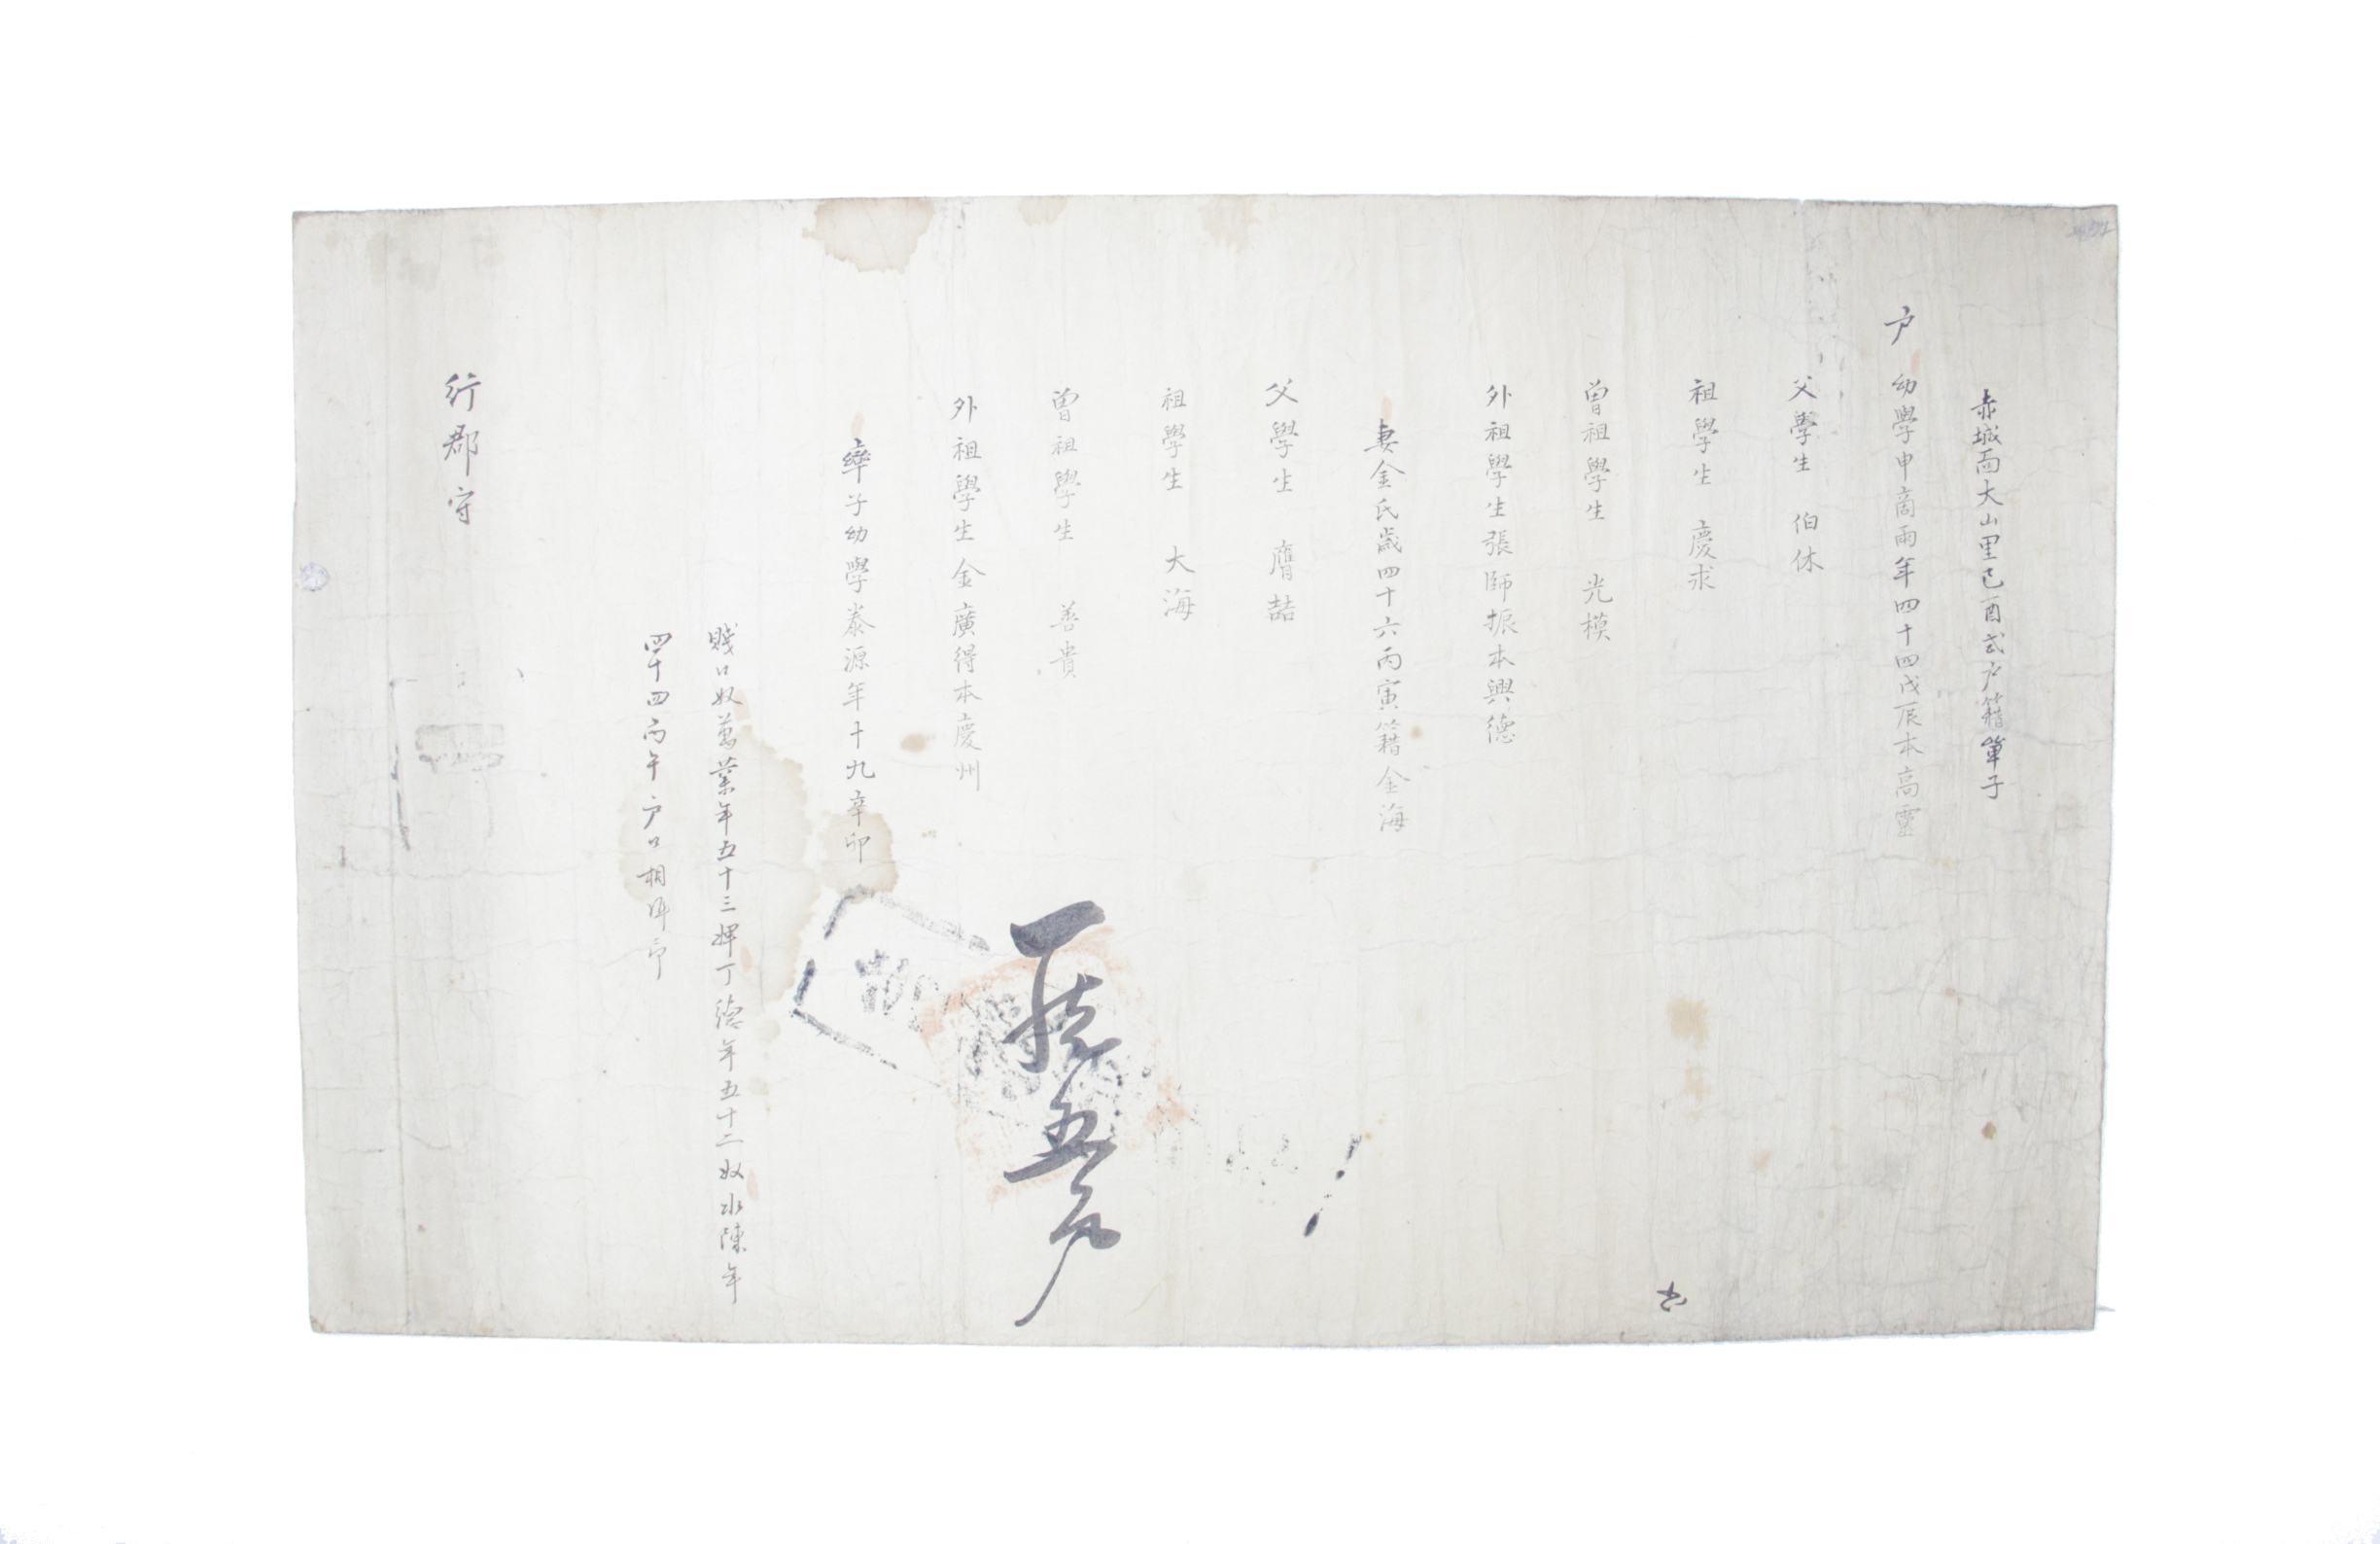 赤城面大山里己酉式戶籍單子
戶 幼學申商雨年四十四戊辰本高靈
父學生 伯休
祖學生 慶求
曽祖學生 光模
外祖學生張師振本興德
妻金氏歲四十六丙寅籍金海
父學生 膺喆
祖學生 大海
曽祖學生 善貴
外祖學生金廣得本慶州
率子幼學泰源年十九辛卯
賤口奴萬業年五十三婢丁德年五十二奴水陳年
四十四丙午戶口相凖印
行郡守
五戶